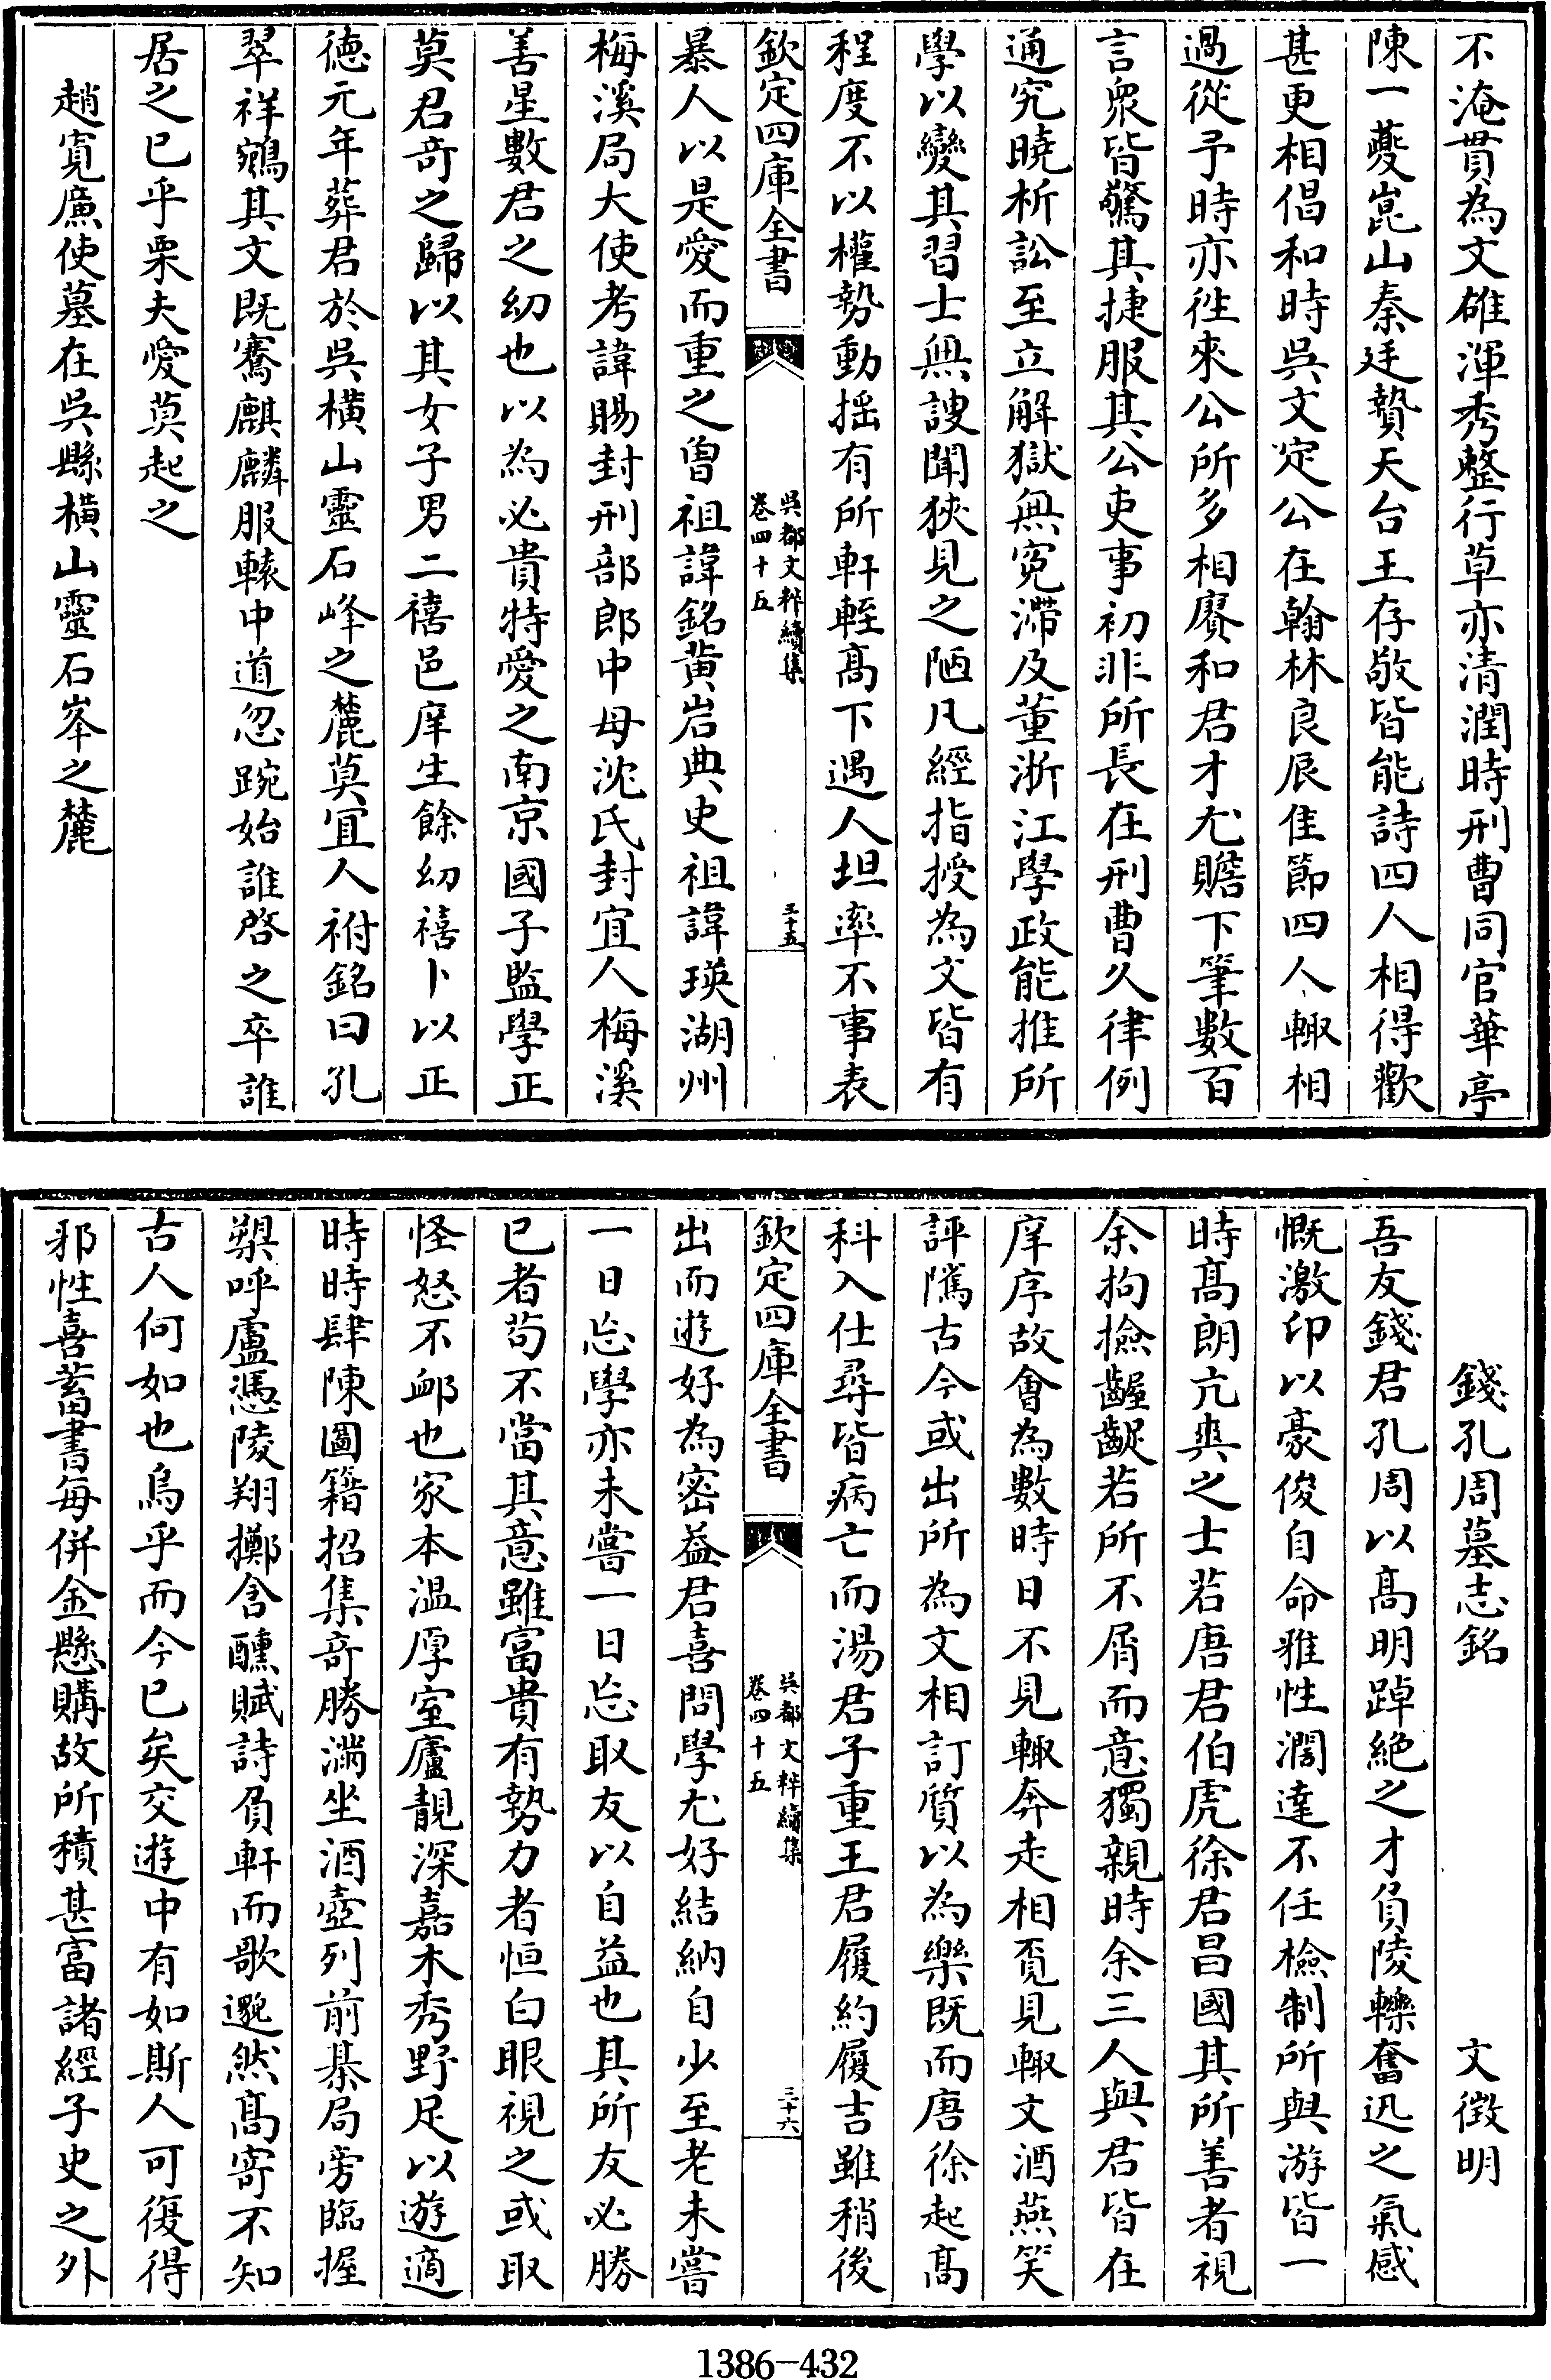 不淹貫為文雄渾秀整行草亦清潤時刑曹同官華亭
陳一夔崑山秦廷贄天台王存敬皆能詩四人相得歡
甚更相倡和時吳文定公在翰林良辰佳節四人輙相
過從予時亦徃來公所多相賡和君才尤贍下筆數百
言衆皆驚其捷服其公吏事初非所長在刑曹久律例
通究曉析訟至立解獄無寃滯及董浙江學政能推所
學以變其習士無謏聞狹見之陋凡經指授為文皆有
程度不以權勢動揺有所軒輊髙下遇人坦率不事表
欽定四庫全書
吳都文粹續集
卷四十五
三十五
暴人以是愛而重之曽祖諱銘黄岩典史祖諱瑛湖州
梅溪局大使考諱賜封刑部郎中母沈氏封宜人梅溪
善星數君之幼也以為必貴特愛之南京國子監學正
莫君竒之歸以其女子男二禧邑庠生餘幼禧卜以正
德元年葬君於吳橫山靈石峰之麓莫宜人祔銘曰孔
翠祥鵷其文既騫麒麟服轅中道忽踠始誰啓之卒誰
居之已乎栗夫愛莫起之
趙寛廉使墓在吳縣橫山靈石峯之麓
錢孔周墓志銘 文徴明
吾友錢君孔周以髙明踔絶之才負陵轢奮迅之氣感
慨激卬以豪俊自命雅性濶達不任檢制所與游皆一
時髙朗亢爽之士若唐君伯虎徐君昌國其所善者視
余拘撿齷齪若所不屑而意獨親時余三人與君皆在
庠序故會為數時日不見輙奔走相覓見輙文酒燕笑
評隲古今或出所為文相訂質以為樂既而唐徐起髙
科入仕尋皆病亡而湯君子重王君履約履吉雖稍後
欽定四庫全書
吳都文粹續集
卷四十五
三十六
出而遊好為密益君喜問學尤好結納自少至老未嘗
一日忘學亦未嘗一日忘取友以自益也其所友必勝
已者茍不當其意雖富貴有勢力者恒白眼視之或取
怪怒不䘏也家本温厚室廬靚深嘉木秀野足以遊適
時時肆陳圖籍招集竒勝滿坐酒壺列前棊局旁臨握
槊呼盧憑陵翔擲含醺賦詩負軒而歌邈然髙寄不知
古人何如也烏乎而今已矣交遊中有如斯人可復得
邪性喜蓄書毎併金懸購故所積甚富諸經子史之外
1386-432